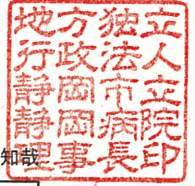 地方独立
行政法人
静岡市立
静岡病院
理事長印
知哉